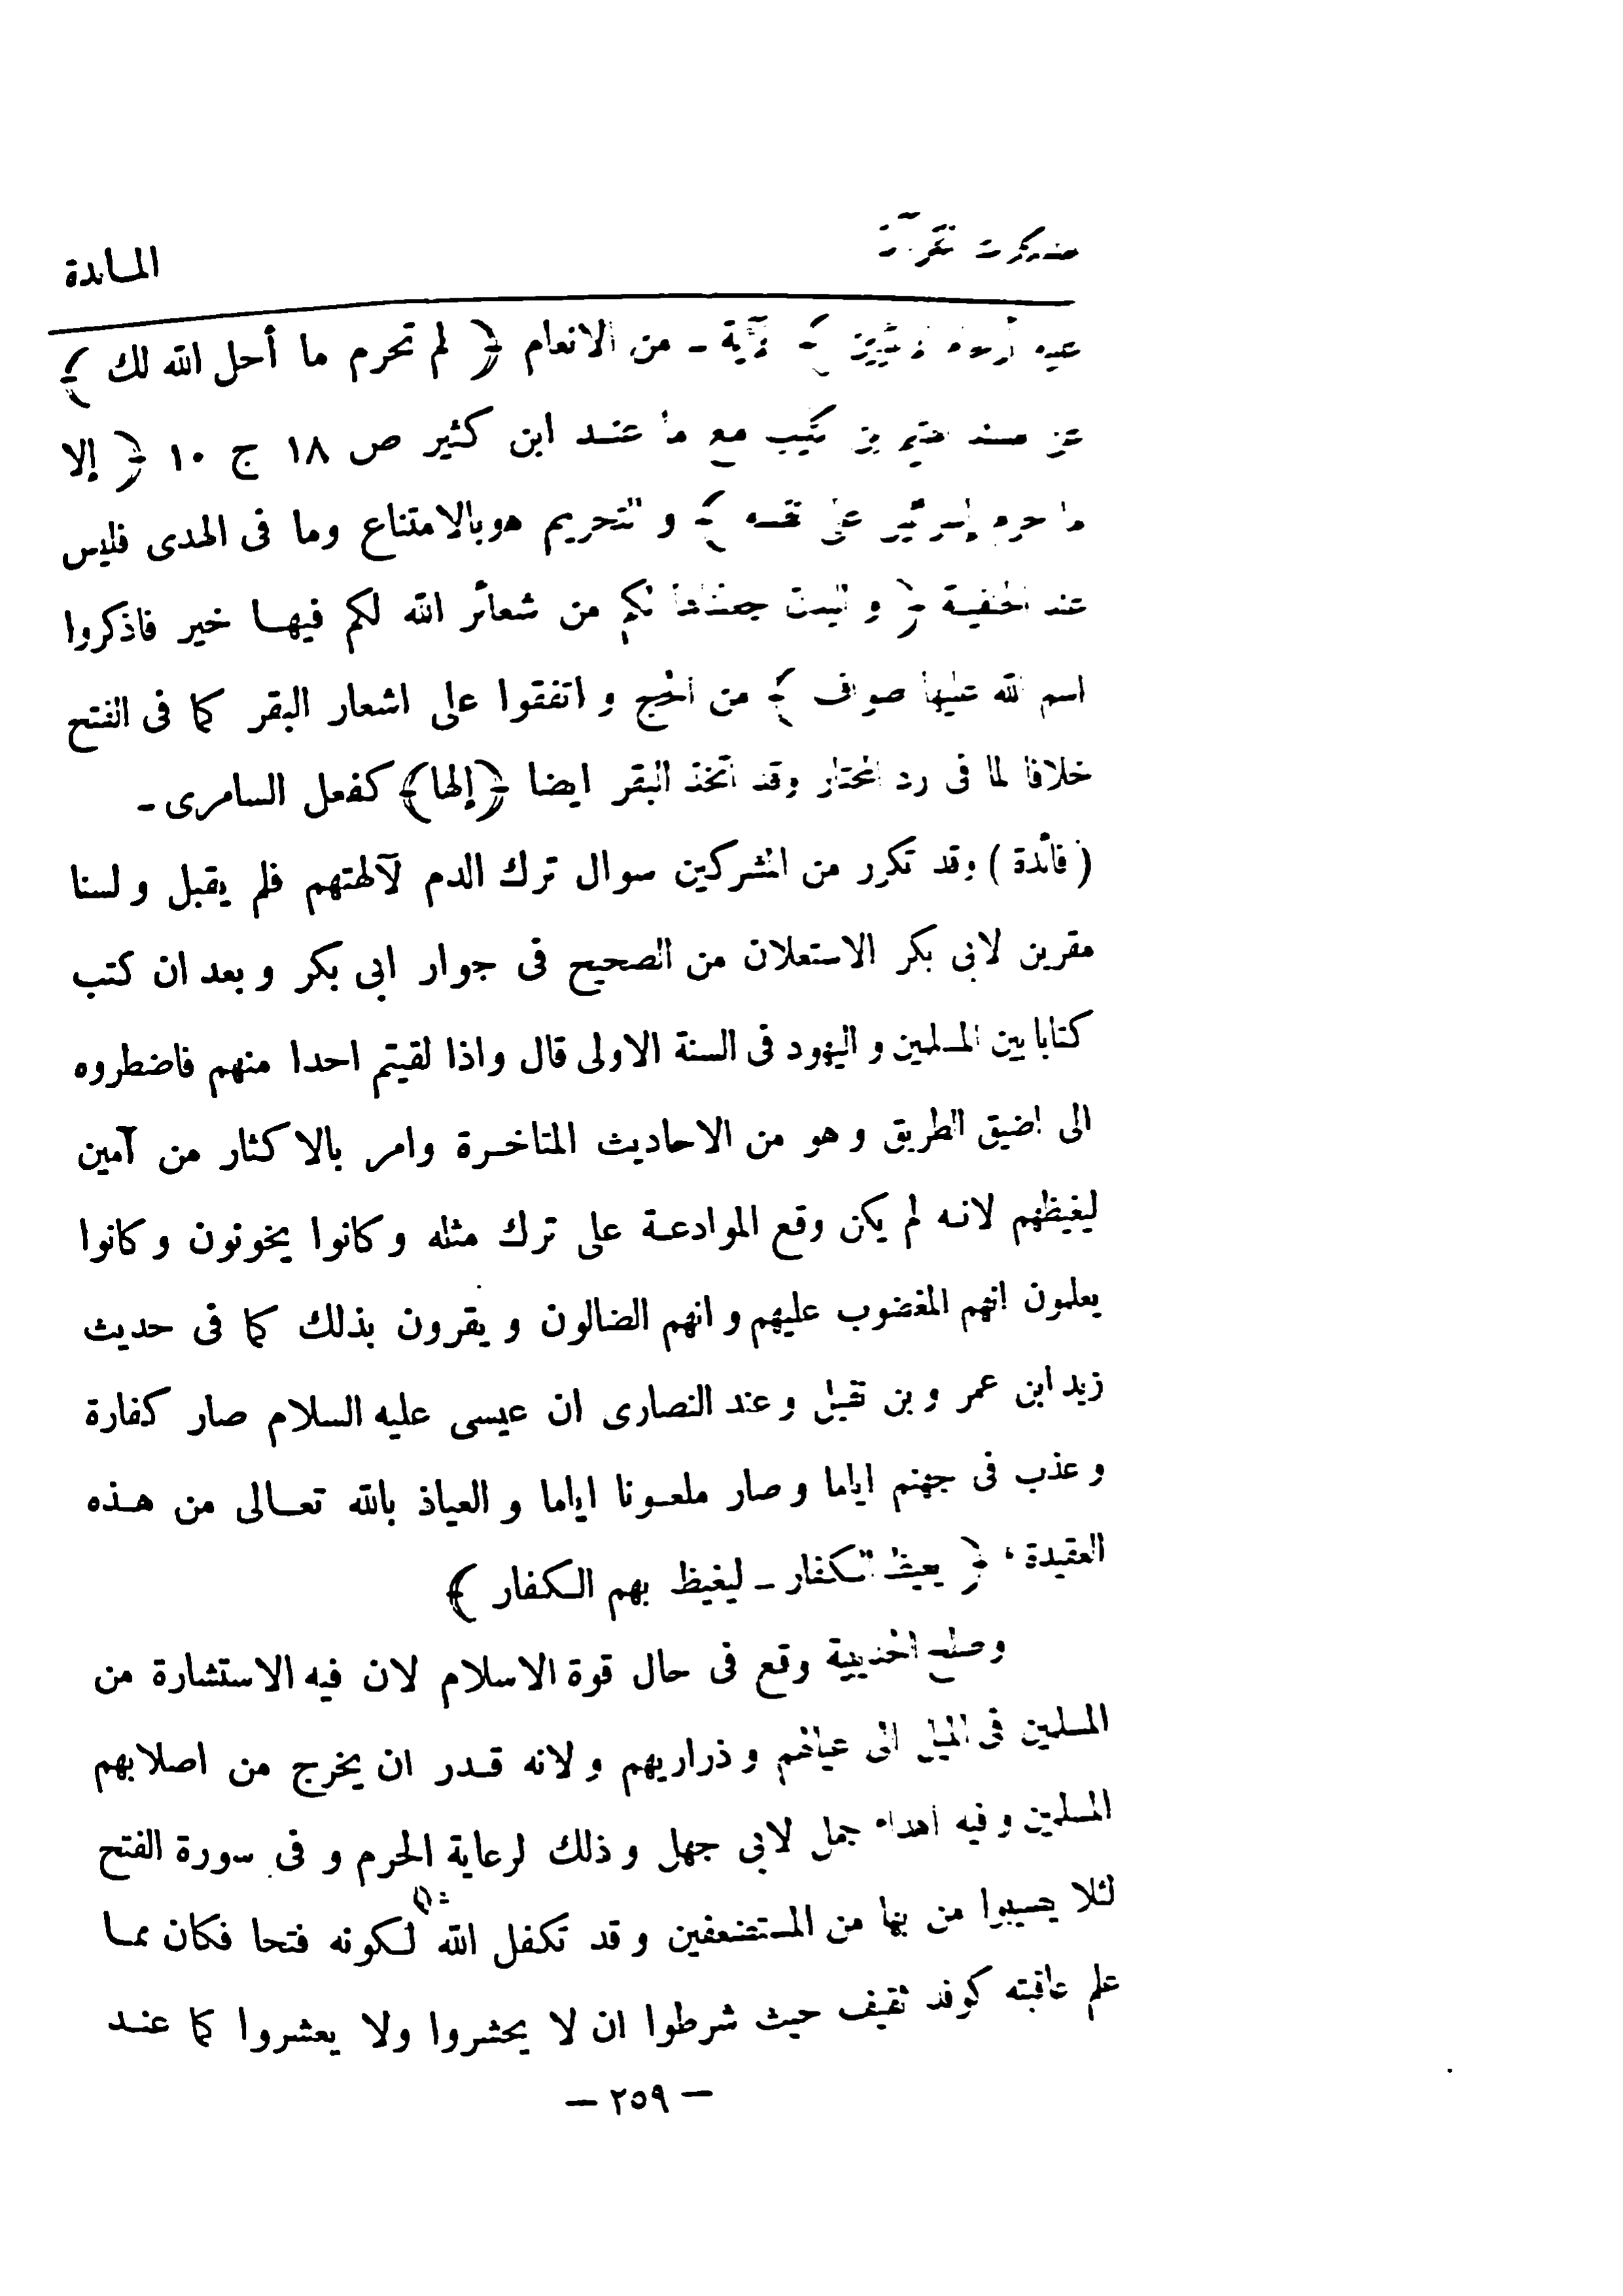 المائدة
عليه أرحام الأنثيين ﴾ الآية - من الانعام ﴿ لم تحرم ما أحل الله لك ﴾
عن مسند الهيثم بن كليب مع ما عند ابن كثير ص ١٨ ج ١٠ ﴿ إلا
ما حرم إسرائيل على نفسه ﴾ و التحريم هوبالامتناع وما فى الهدى فليس
عند الحنفية ﴿ و البدن جعلناها لكم من شعائر الله لكم فيها خير فاذكروا
اسم الله عليها صواف ﴾ من الحج و اتفقوا على اشعار البقر كما فى الفتح
خلافا لما فى رد المحتار وقد اتخذ البقر ايضا ﴿إلها﴾ كفعل السامرى -
( فائدة ) وقد تكرر من المشركين سوال ترك الدم لآلهتهم فلم يقبل و لسنا
مقرين لابى بكر الاستعلان من الصحيح فى جوار ابى بكر و بعد ان كتب
كتابا بين المسلمين و اليهود فى السنة الاولى قال واذا لقيتم احدا منهم فاضطروه
الى اضيق الطريق و هو من الاحاديث المتاخرة وامر بالاكثار من آمين
ليغيظهم لانه لم يكن وقع الموادعة على ترك مثله و كانوا يخونون و كانوا
يعلمون انهم المغضوب عليهم و انهم الضالون و يقرون بذلك كما فى حديث
زيد ابن عمر و بن نفيل و عند النصارى ان عيسى عليه السلام صار كفارة
و عذب فى جهنم اياما و صار ملعونا اياما و العياذ بالله تعالى من هذه
العقيدة، ﴿ يغيظ الكفار - ليغيظ بهم الكفار ﴾
وصلح الحديبية وقع فى حال قوة الاسلام لان فيه الاستشارة من
المسلمين فى الميل الى عيالهم و ذراريهم و لانه قدر ان يخرج من اصلابهم
المسلمين و فيه اهداء جمل لابى جهل و ذلك لرعاية الحرم و فى سورة الفتح
لئلا يصيبوا من بها من المستضعفين و قد تكفل الله لكونه فتحا فكان مما
علم عاقبته كوفد ثقيف حيث شرطوا ان لا يحشروا ولا يعشروا كما عند
— ٢٥٩ —